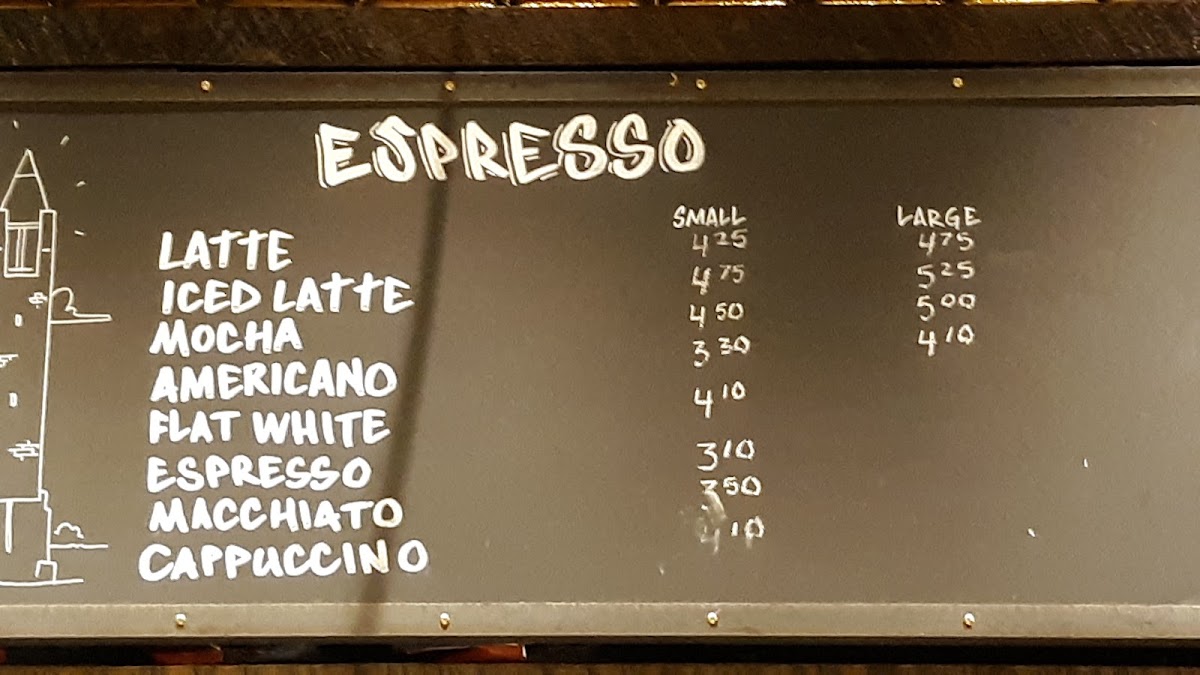 ESPRESSO
SMALL LARGE
LATTE 4 25 4 75
ICED LATTE 4 75 5 25
MOCHA 4 50 5 00
AMERICANO 3 30 4 10
FLAT WHITE 4 10
ESPRESSO 3 10
MACCHIATO 3 50
CAPPUCCINO 4 10